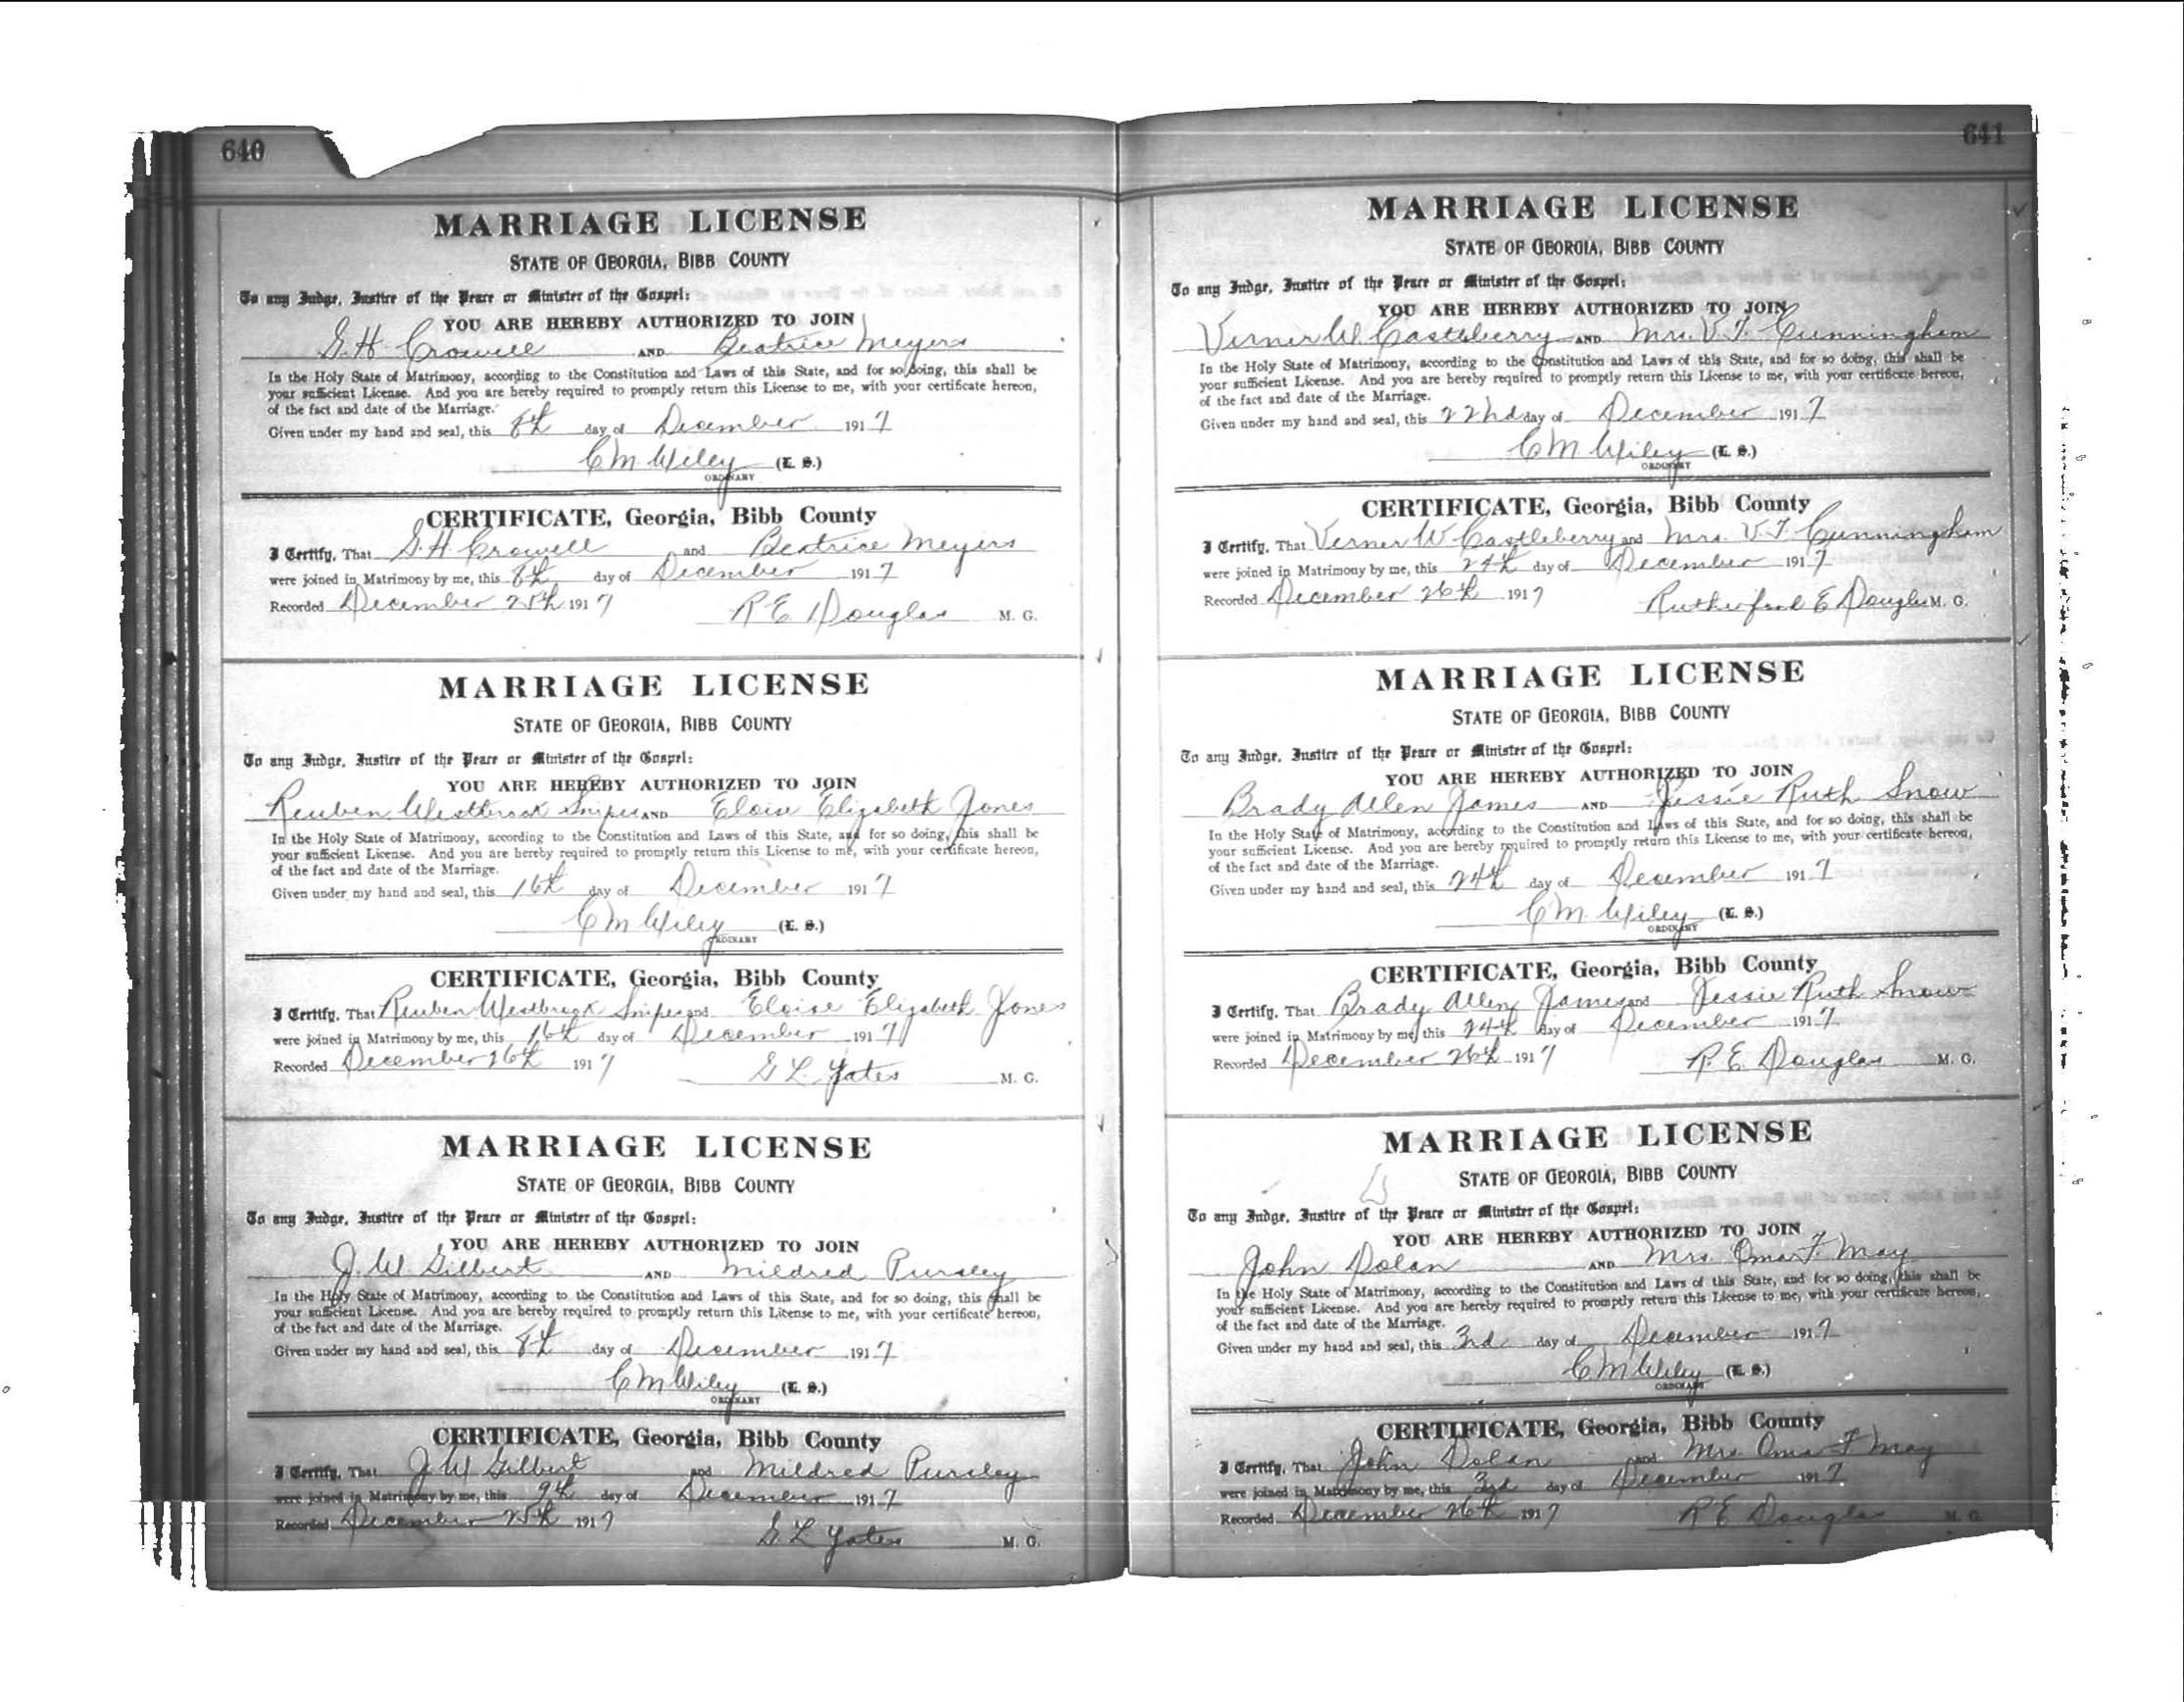 640
MARRIAGE LICENSE
STATE OF GEORGIA, BIBB COUNTY
To any Judge, Justice of the Peace or Minister of the Gospel:
YOU ARE HEREBY AUTHORIZED TO JOIN
G. H. Crowell AND Beatrice Meyers
In the Holy State of Matrimony, according to the Constitution and Laws of this State, and for so doing, this shall be
your sufficient License. And you are hereby required to promptly return this License to me, with your certificate hereon,
of the fact and date of the Marriage.
Given under my hand and seal, this 8th day of December 1917
C M Wiley (L. S.)
ORDINARY
CERTIFICATE, Georgia, Bibb County
I Certify, That G. H. Crowell and Beatrice Meyers
were joined in Matrimony by me, this 8th day of December 1917
Recorded December 25th 1917 R E Douglas M. G.
MARRIAGE LICENSE
STATE OF GEORGIA, BIBB COUNTY
To any Judge, Justice of the Peace or Minister of the Gospel:
YOU ARE HEREBY AUTHORIZED TO JOIN
Reuben Westbrook Snipes AND Eloise Elizabeth Jones
In the Holy State of Matrimony, according to the Constitution and Laws of this State, and for so doing, this shall be
your sufficient License. And you are hereby required to promptly return this License to me, with your certificate hereon,
of the fact and date of the Marriage.
Given under my hand and seal, this 16th day of December 1917
C M Wiley (L. S.)
ORDINARY
CERTIFICATE, Georgia, Bibb County
I Certify, That Reuben Westbrook Snipes and Eloise Elizabeth Jones
were joined in Matrimony by me, this 16th day of December 1917
Recorded December 26th 1917 G L Yates M. G.
MARRIAGE LICENSE
STATE OF GEORGIA, BIBB COUNTY
To any Judge, Justice of the Peace or Minister of the Gospel:
YOU ARE HEREBY AUTHORIZED TO JOIN
J. W. Gilbert AND Mildred Pursley
In the Holy State of Matrimony, according to the Constitution and Laws of this State, and for so doing, this shall be
your sufficient License. And you are hereby required to promptly return this License to me, with your certificate hereon,
of the fact and date of the Marriage.
Given under my hand and seal, this 8th day of December 1917
C M Wiley (L. S.)
ORDINARY
CERTIFICATE, Georgia, Bibb County
I Certify, That J W Gilbert and Mildred Pursley
were joined in Matrimony by me, this 9th day of December 1917
Recorded December 25th 1917 G L Yates M. G.
641
MARRIAGE LICENSE
STATE OF GEORGIA, BIBB COUNTY
To any Judge, Justice of the Peace or Minister of the Gospel:
YOU ARE HEREBY AUTHORIZED TO JOIN
Verner W Castleberry AND Mrs. V. T. Cunningham
In the Holy State of Matrimony, according to the Constitution and Laws of this State, and for so doing, this shall be
your sufficient License. And you are hereby required to promptly return this License to me, with your certificate hereon,
of the fact and date of the Marriage.
Given under my hand and seal, this 22nd day of December 1917
C M Wiley (L. S.)
ORDINARY
CERTIFICATE, Georgia, Bibb County
I Certify, That Verner W Castleberry and Mrs. V. T. Cunningham
were joined in Matrimony by me, this 24th day of December 1917
Recorded December 26th 1917 Rutherford E Douglas M. G.
MARRIAGE LICENSE
STATE OF GEORGIA, BIBB COUNTY
To any Judge, Justice of the Peace or Minister of the Gospel:
YOU ARE HEREBY AUTHORIZED TO JOIN
Brady Allen James AND Jessie Ruth Snow
In the Holy State of Matrimony, according to the Constitution and Laws of this State, and for so doing, this shall be
your sufficient License. And you are hereby required to promptly return this License to me, with your certificate hereon,
of the fact and date of the Marriage.
Given under my hand and seal, this 24th day of December 1917
C M Wiley (L. S.)
ORDINARY
CERTIFICATE, Georgia, Bibb County
I Certify, That Brady Allen James and Jessie Ruth Snow
were joined in Matrimony by me, this 24th day of December 1917
Recorded December 26th 1917 R. E. Douglas M. G.
MARRIAGE LICENSE
STATE OF GEORGIA, BIBB COUNTY
To any Judge, Justice of the Peace or Minister of the Gospel:
YOU ARE HEREBY AUTHORIZED TO JOIN
John Dolan AND Mrs Oma F. May
In the Holy State of Matrimony, according to the Constitution and Laws of this State, and for so doing, this shall be
your sufficient License. And you are hereby required to promptly return this License to me, with your certificate hereon,
of the fact and date of the Marriage.
Given under my hand and seal, this 3rd day of December 1917
C M Wiley (L. S.)
ORDINARY
CERTIFICATE, Georgia, Bibb County
I Certify, That John Dolan and Mrs Oma F May
were joined in Matrimony by me, this 3rd day of December 1917
Recorded December 26th 1917 R E Douglas M. G.